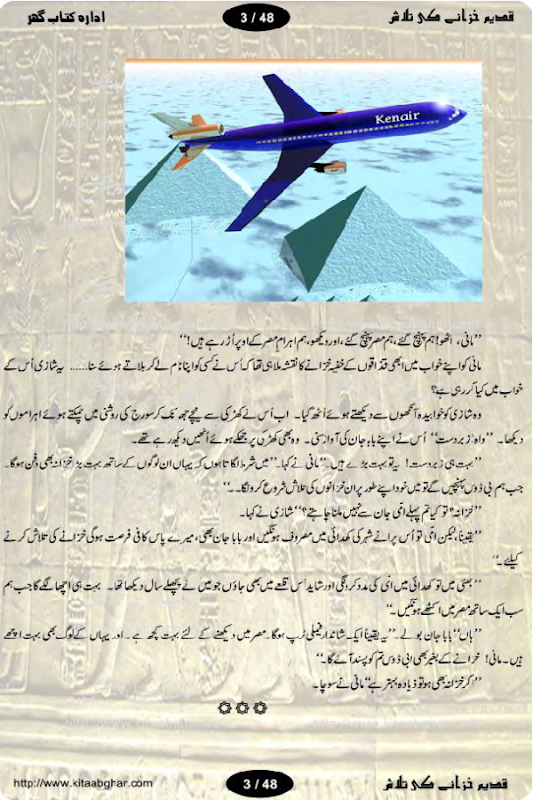 ادارہ کتاب گھر
3 / 48
قدیم خزانے کی تلاش
Kenair
’’مانی، اٹھو! ہم پہنچ گئے، ہم مصر پہنچ گئے، اور دیکھو، ہم اہرام مصر کے اوپر اُڑ رہے ہیں!‘‘
مانی کو اپنے خواب میں ابھی قذاقوں کے خفیہ خزانے کا نقشہ ملا ہی تھا کہ اُس نے کسی کو اپنا نام لے کر بلاتے ہوئے سنا...... یہ شازی اُس کے
خواب میں کیا کر رہی ہے؟
وہ شازی کو خوابیدہ آنکھوں سے دیکھتے ہوئے اُٹھ گیا۔ اب اُس نے کھڑکی سے نیچے جھانک کر سورج کی روشنی میں چمکتے ہوئے اہراموں کو
دیکھا۔ ’’واہ زبردست‘‘ اُس نے اپنے بابا جان کی آواز سنی۔ وہ بھی کھڑکی پر جھکے ہوئے اُنھیں دیکھ رہے تھے۔
’’بہت ہی زبردست! یہ تو بہت بڑے ہیں۔‘‘ مانی نے کہا۔ ’’میں شرط لگاتا ہوں کہ یہاں ان لوگوں کے ساتھ بہت بڑا خزانہ بھی دفن ہوگا۔
جب ہم ابی ڈوس پہنچیں گے تو میں خود اپنے طور پر ان خزانوں کی تلاش شروع کرونگا۔‘‘
’’خزانہ؟ تو کیا تم پہلے امی جان سے نہیں ملنا چاہتے؟‘‘ شازی نے کہا۔
’’یقیناً، لیکن امی تو اُس پرانے شہر کی کھدائی میں مصروف ہونگیں اور بابا جان بھی، میرے پاس کافی فرصت ہوگی خزانے کی تلاش کرنے
کیلئے۔‘‘
’’بھئی میں تو کھدائی میں امی کی مدد کرونگی اور شاید اس قلعے میں بھی جاؤں جو میں نے پچھلے سال دیکھا تھا۔ بہت ہی اچھا لگے گا جب ہم
سب ایک ساتھ مصر میں اکٹھے ہونگیں۔‘‘
’’ہاں‘‘ بابا جان بولے۔ ’’یہ یقیناً ایک شاندار فیملی ٹرپ ہوگا۔ مصر میں دیکھنے کے لئے بہت کچھ ہے۔ اور یہاں کے لوگ بھی بہت اچھے
ہیں۔ مانی! خزانے کے بغیر بھی ابی ڈوس تم کو پسند آئے گا۔‘‘
’’اگر خزانہ بھی ہو تو زیادہ بہتر ہے‘‘ مانی نے سوچا۔
http://www.kitaabghar.com
3 / 48
قدیم خزانے کی تلاش